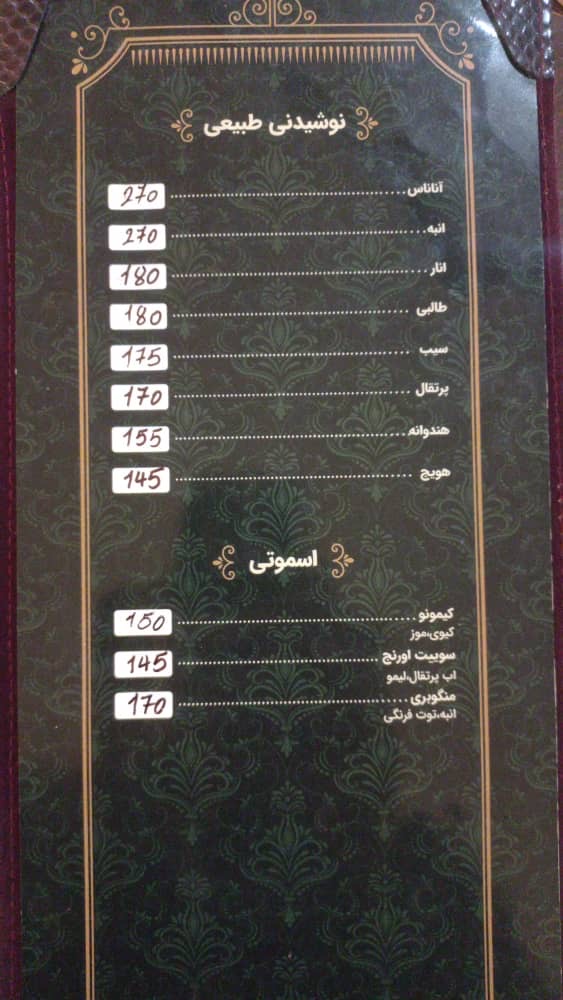 نوشیدنی طبیعی
آناناس 270
انبه 270
انار 180
طالبی 180
سیب 175
پرتقال 170
هندوانه 155
هویج 145
اسموتی
کیمونو 150
کیوی،موز
سوییت اورنج 145
اب پرتقال،لیمو
منگوبری 170
انبه،توت فرنگی